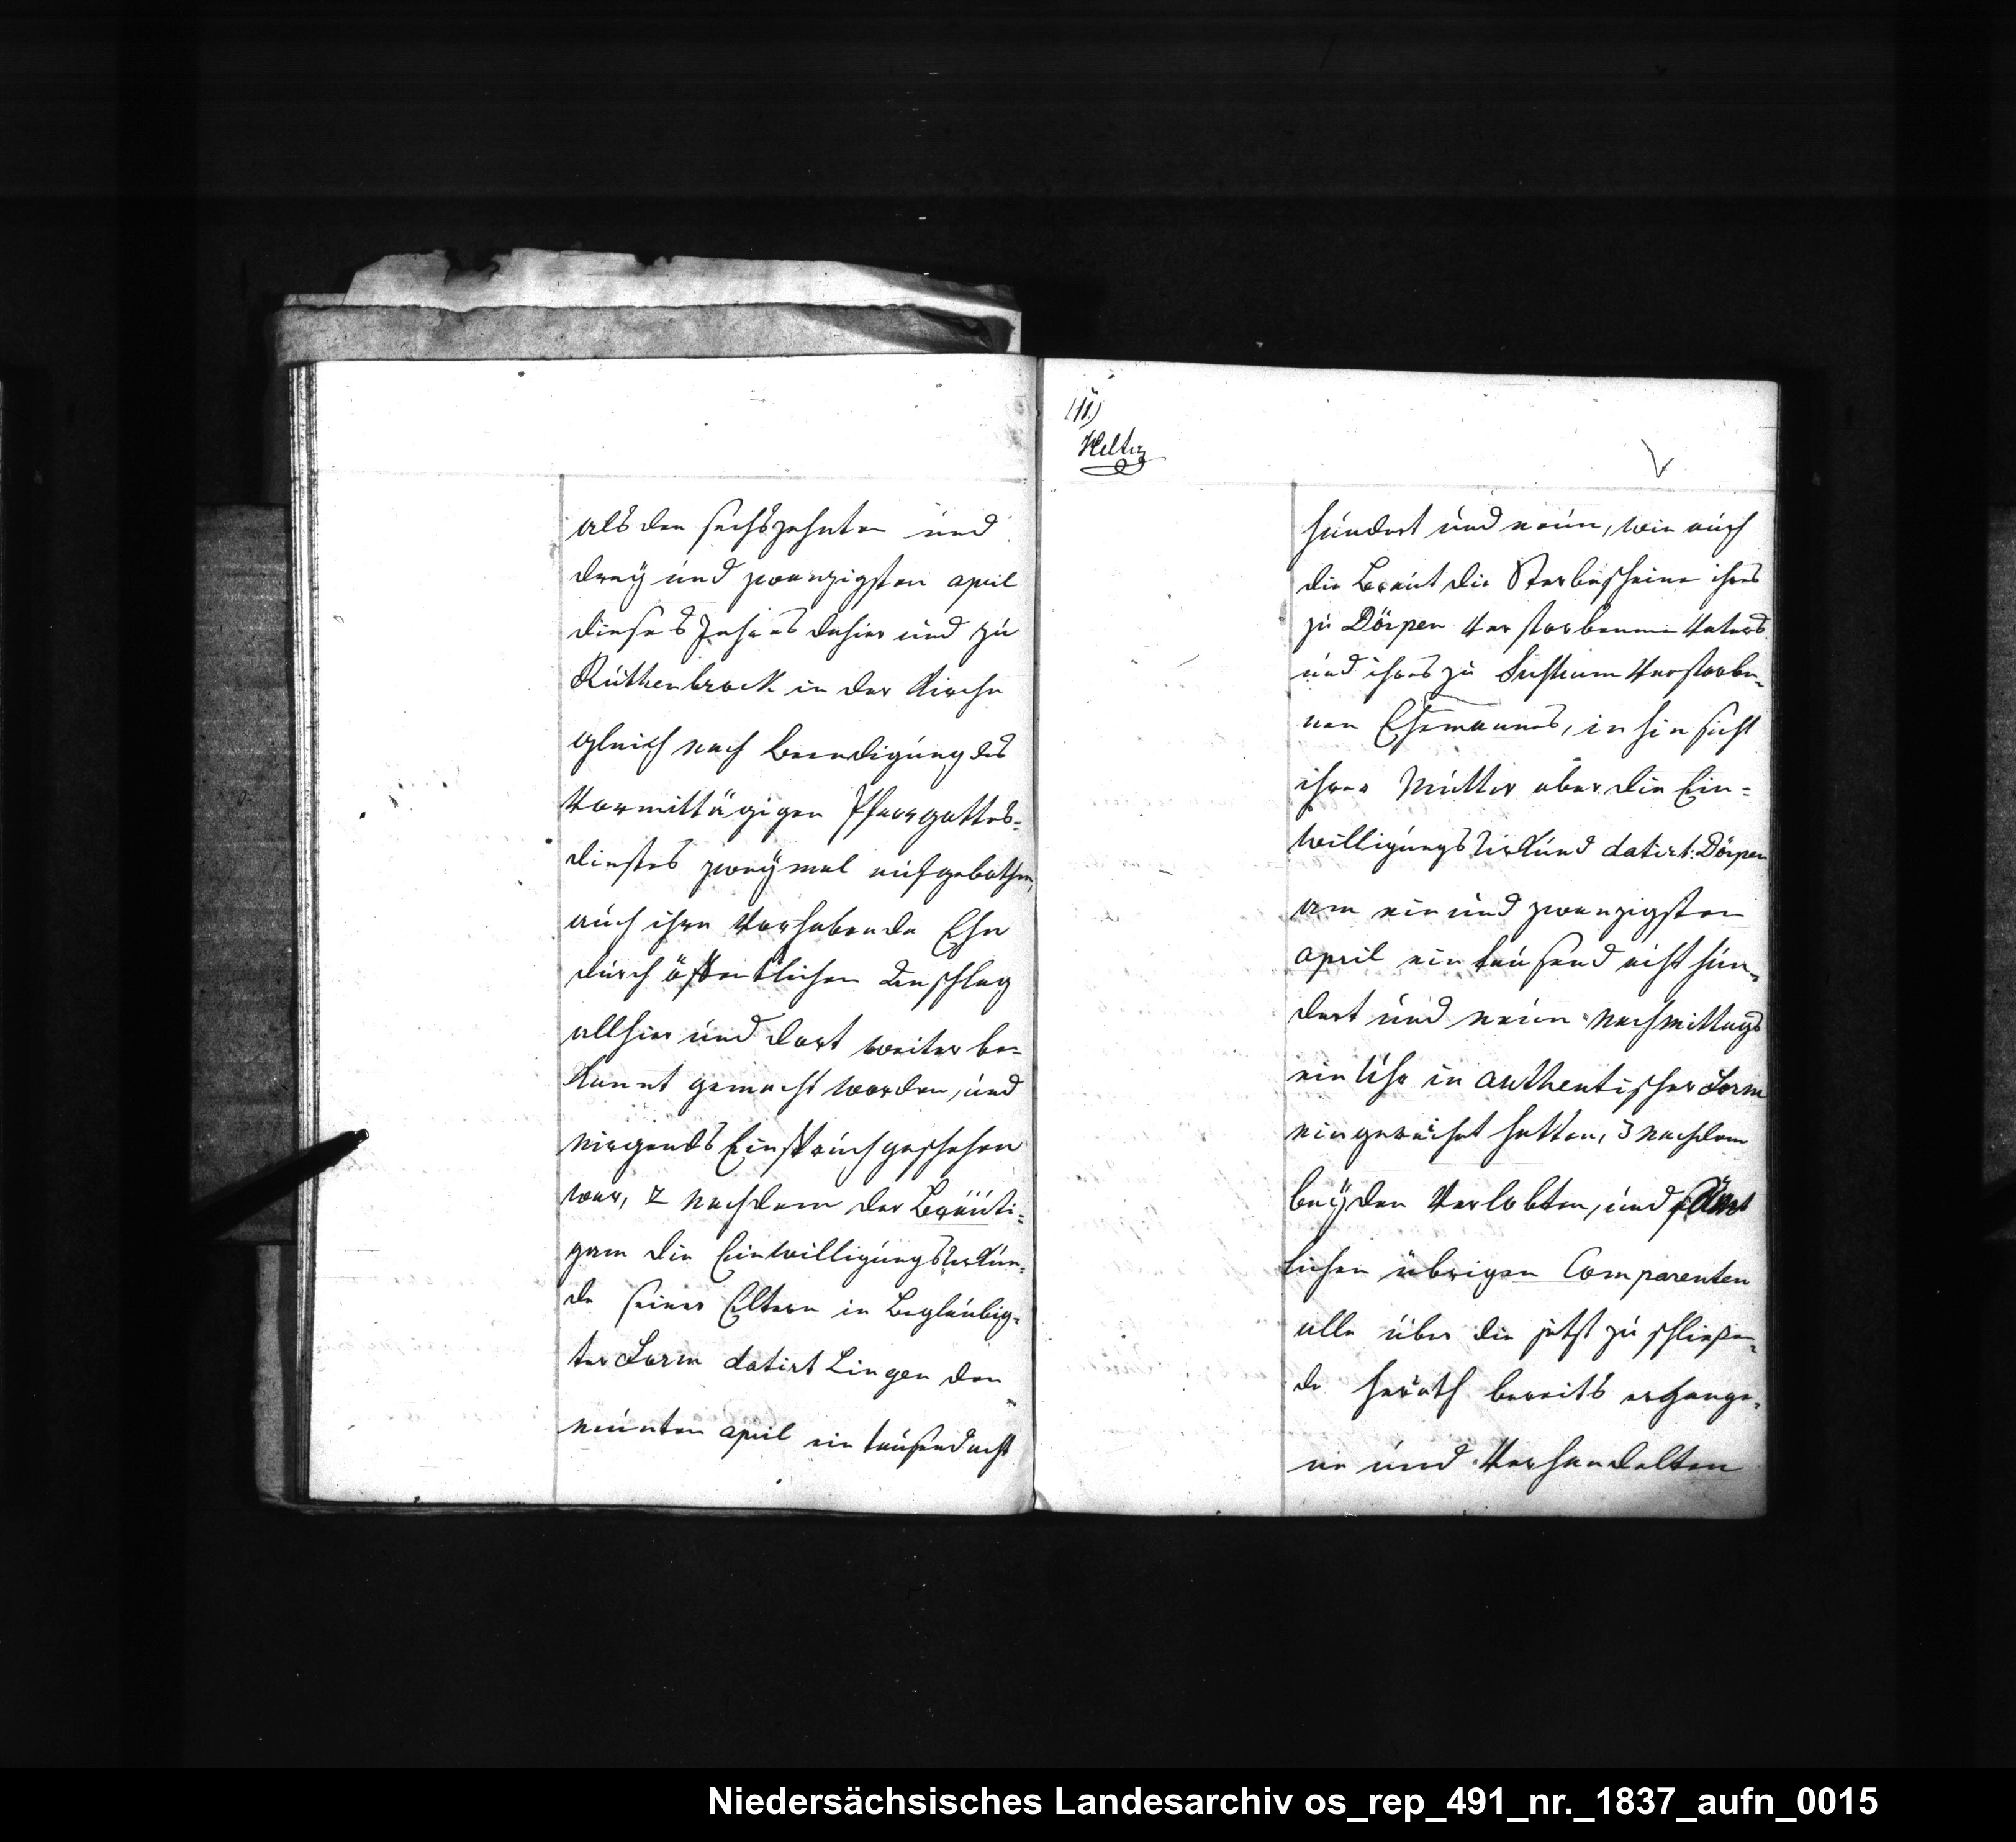 als den sechszehnten und
dreÿ und zwanzigsten april
dieses Jahres dahier und zu
Rüthenbrock in der Kirche
gleich nach Beendigung des
Vormittägigen Pfarrgottes=
dienstes zweÿmal aufgebothen,
auch ihre Vorhabende Ehe
durch öffentlichen Anschlag
allhier und dort weiter be=
kannt gemacht worden, und
nirgends Einspruch geschehen
war, 2 nachdem der Bräuti=
gam die Einwilligungsurkun=
de seiner Eltern in Beglaubig=
ter Form datirt Lingen den
neunten april ein tausend acht
(11)
hundert und neun, wie auch
die Braut die Sterbescheine ihres
zu Dörpen Verstorbenen Vaters
und ihres zu Verstorbe=
nen Ehemannes, in hinsicht
ihrer Mutter aber die Ein=
willigungs Urkund datirt: Dörpen
am ein und zwanzigsten
april ein tausend acht hun=
dert und neun Nachmittags
ein Uhr in authentischer Form
eingereichet hatten, 3 nachdem
beÿden Verlobten, und sämt
lichen übrigen Comparenten
alle über die jetzt zu schließen=
de heÿrath bereits ergange=
ne und Verhandelten
Niedersächsisches Landesarchiv os_rep_491_nr._1837_aufn_0015